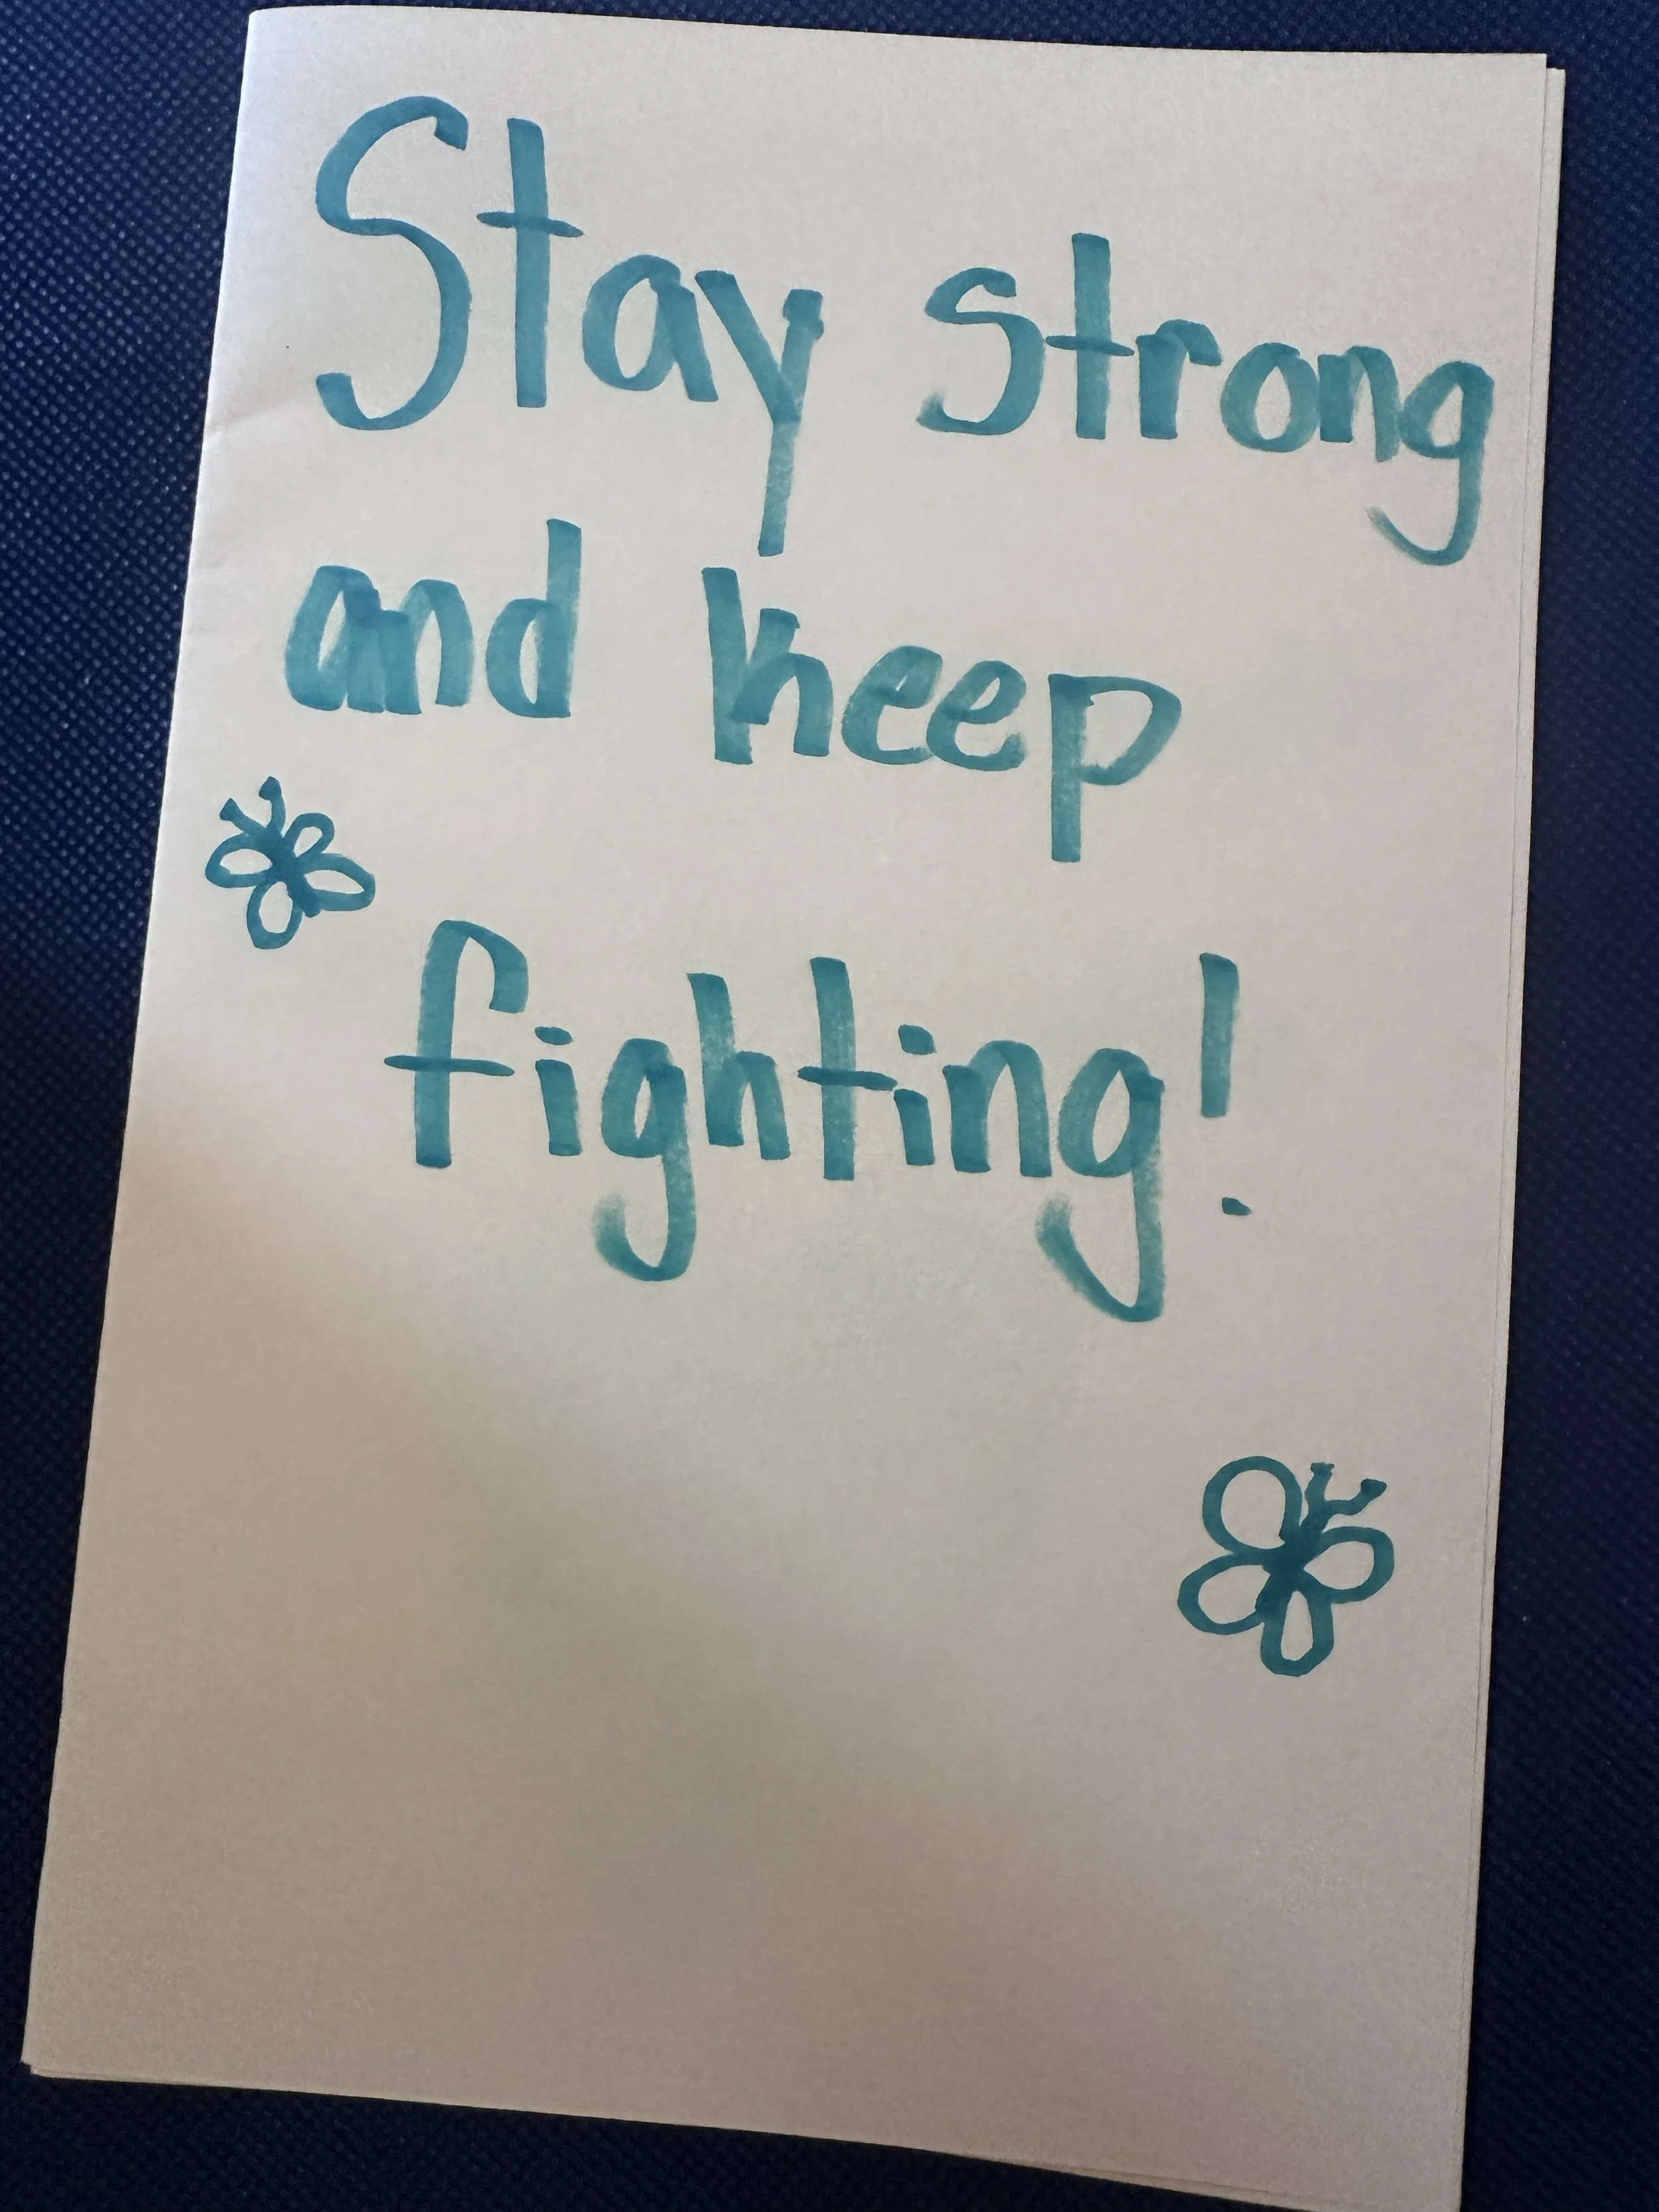 Stay strong
and keep
fighting!